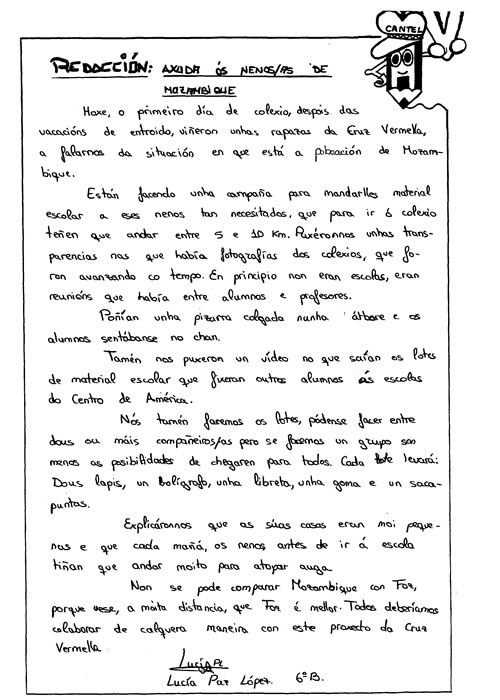 CANTEL
REDACCIÓN: AXUDA ÓS NENOS/AS DE
MOZAMBIQUE
Hoxe, o primeiro día de colexio, despois das
vacacións de entroido, viñeron unhas rapazas da Cruz Vermella,
a falarnos da situación en que está a poboación de Mozam-
bique.
Están facendo unha campaña para mandarlles material
escolar a eses nenos tan necesitados, que para ir ó colexio
teñen que andar entre 5 e 10 Km. Puxéronnos unhas trans-
parencias nas que había fotografías dos colexios, que fo-
ron avanzando co tempo. En principio non eran escolas, eran
reunións que había entre alumnos e profesores.
Poñían unha pizarra colgada nunha árbore e os
alumnos sentábanse no chan.
Tamén nos puxeron un vídeo no que saían os lotes
de material escolar que fixeran outros alumnos ás escolas
do Centro de América.
Nós tamén faremos os lotes, pódense facer entre
dous ou máis compañeiros/as pero se facemos un grupo son
menos as posibilidades de chegaren para todos. Cada lote levará:
Dous lapis, un bolígrafo, unha libreta, unha goma e un saca-
puntas.
Explicáronnos que as súas casas eran moi peque-
nas e que cada mañá, os nenos antes de ir á escola
tiñan que andar moito para atopar auga.
Non se pode comparar Mozambique con Foz,
porque vese, a moita distancia, que Foz é mellor. Todos deberíamos
colaborar de calquera maneira con este proxecto da Cruz
Vermella.
Lucía Paz López. 6º B.